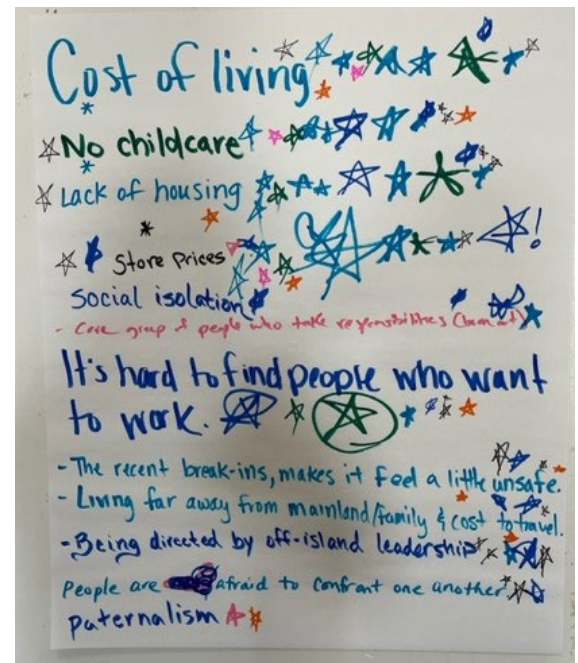 Cost of living
No childcare
Lack of housing
Store Prices
!
Social isolation
- Core group of people who take responsibilities
It's hard to find people who want
to work.
- The recent break-ins, makes it feel a little unsafe.
- Living far away from mainland/family & cost to travel.
- Being directed by off-island leadership
People are afraid to confront one another
paternalism